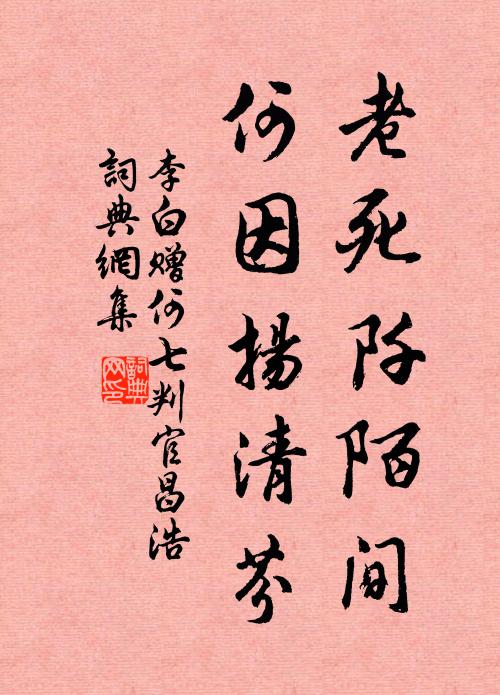 老死阡陌间
何因揚清芬
李白赠何七判官昌浩
詞典網集
詞典网印